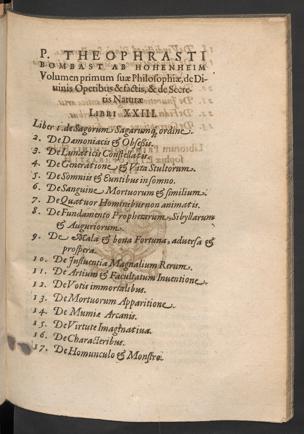 P. THEOPHRASTI
BOMBAST AB HOHENHEIM
Volumen primum suæ Philosophiæ, de Di-
uinis Operibus & factis, & de Secre-
tis Naturæ
LIBRI XXIII.
Liber 1. de Sagorum, Sagarumq́ ordine.
2. De Dæmoniacis & Obsessis.
3. De Lunaticis Constellatis.
4. De Generatione & Vita Stultorum.
5. De Somniis & Euntibus in somno.
6. De Sanguine Mortuorum & similium.
7. De Quatuor Hominibus non animatis.
8. De Fundamento Prophetarum, Sibyllarum
& Auguriorum.
9. De Mala & bona Fortuna, aduersa &
prospera.
10. De Influentia Magnalium Rerum.
11. De Artium & Facultatum Inuentione.
12. De Votis immortalibus.
13. De Mortuorum Apparitione.
14. De Mumiæ Arcanis.
15. De Virtute Imaginatiua.
16. De Characteribus.
17. De Homunculo & Monstro.